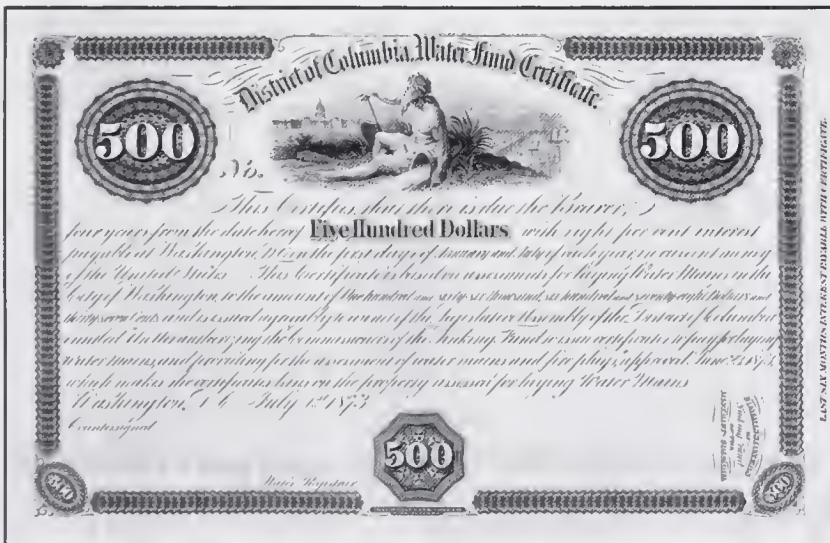 District of Columbia Water Fund Certificate.
500
500
No.
This Certifies, that there is due the Bearer,
four years from the date hereof Five Hundred Dollars with eight per cent interest
payable at Washington, D.C. on the first days of January and July of each year, in current money
of the United States. This Certificate is based on assessments for laying Water Mains in the
City of Washington, to the amount of One hundred and sixty six thousand, six hundred and seventy eight Dollars and
thirty seven Cents and is issued agreeably to an act of the Legislative Assembly of the District of Columbia
entitled An Act authorizing the Commissioners of the Sinking Fund to issue certificates to pay for laying
water mains, and providing for the assessment of water mains and fire plugs, approved June 1873,
which makes the certificates liens on the property assessed for laying Water Mains
Washington, D.C. July 1st 1873
Countersigned
500
Water Registrar
500
500
COMMISSIONERS
of the
Sinking Fund
DISTRICT OF COLUMBIA
LAST SIX MONTHS INTEREST PAYABLE WITH CERTIFICATE.